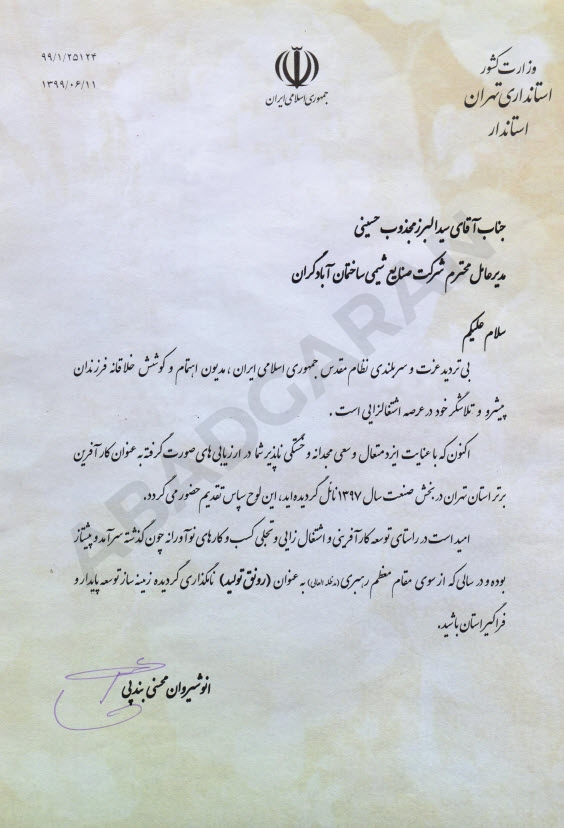 ۹۹/۱/۲۵۱۲۴
۱۳۹۹/۰۶/۱۱
جمهوری اسلامی ایران
وزارت کشور
استانداری تهران
استاندار
جناب آقای سید البرز مجذوب حسینی
مدیرعامل محترم شرکت صنایع شیمی ساختمان آبادگران
سلام علیکم
بی تردید عزت و سربلندی نظام مقدس جمهوری اسلامی ایران ، مدیون اهتمام و کوشش خلاقانه فرزندان
پیشرو و تلاشگر خود در عرصه اشتغالزایی است .
اکنون که با عنایت ایزد متعال و سعی مجدانه و خستگی ناپذیر شما در ارزیابی های صورت گرفته به عنوان کارآفرین
برتر استان تهران در بخش صنعت سال ۱۳۹۷ نائل گردیده اید، این لوح سپاس تقدیم حضور می گردد.
امید است در راستای توسعه کارآفرینی و اشتغال زایی و تجلی کسب و کارهای نوآورانه چون گذشته سرآمد و پیشتاز
بوده و در سالی که از سوی مقام معظم رهبری (مدظله العالی) به عنوان (رونق تولید) نامگذاری گردیده زمینه ساز توسعه پایدار و
فراگیر استان باشید.
انوشیروان محسنی بندپی
ABADGARAN